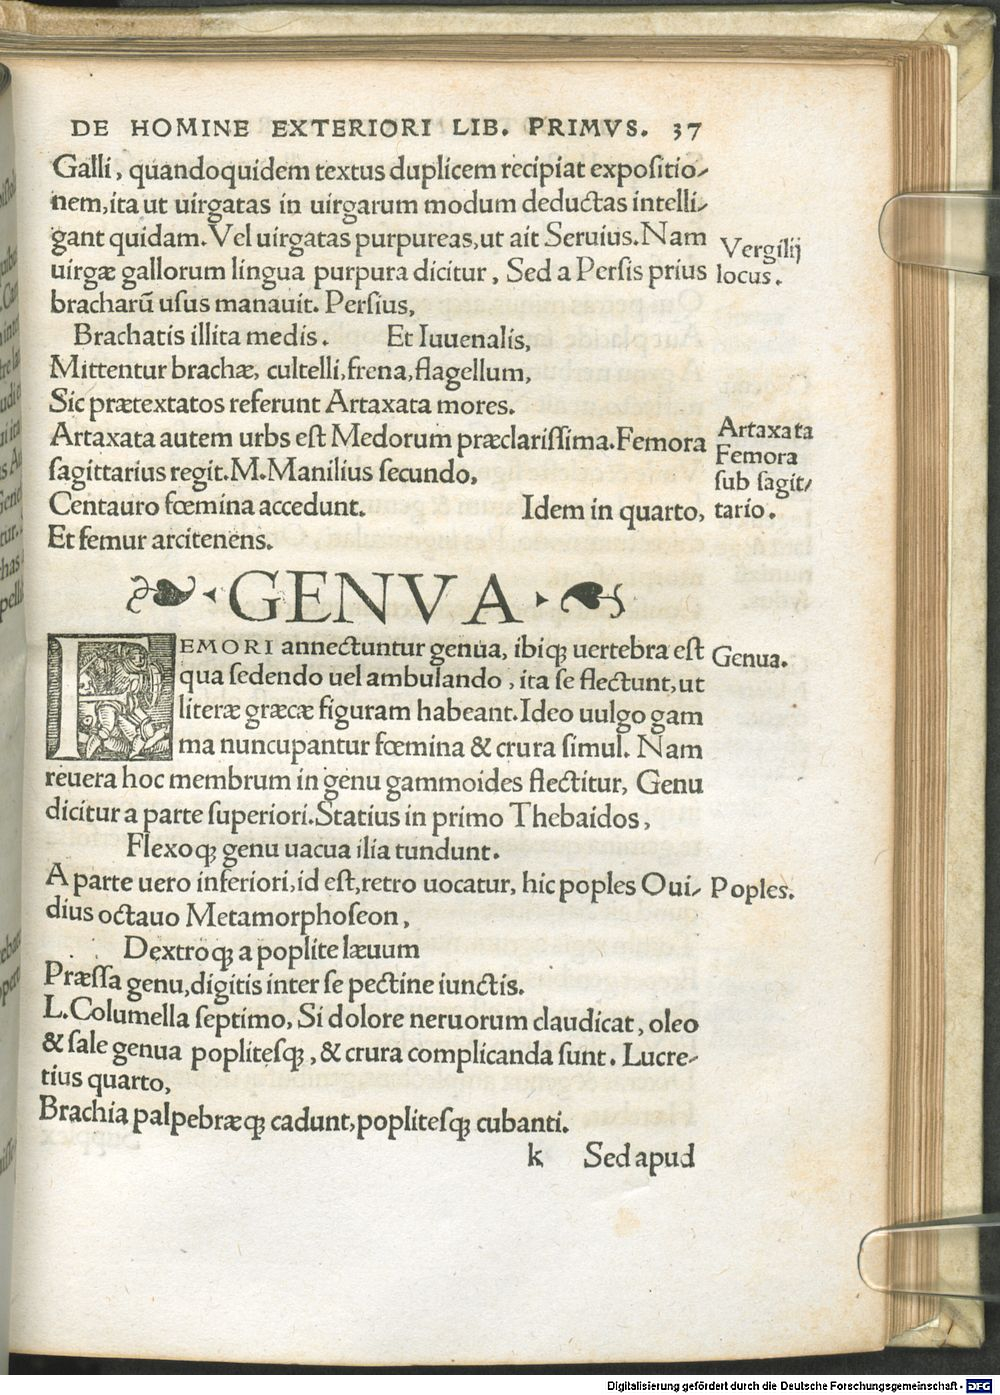 DE HOMINE EXTERIORI LIB. PRIMVS. 37
Galli, quandoquidem textus duplicem recipiat expositio-
nem, ita ut uirgatas in uirgarum modum deductas intelli-
gant quidam. Vel uirgatas purpureas, ut ait Seruius. Nam
uirgæ gallorum lingua purpura dicitur, Sed a Persis prius
bracharũ usus manauit. Persius,
Vergilij
locus.
Brachatis illita medis. Et Iuuenalis,
Mittentur brachæ, cultelli, frena, flagellum,
Sic prætextatos referunt Artaxata mores.
Artaxata autem urbs est Medorum præclarissima. Femora
sagittarius regit. M. Manilius secundo,
Centauro fœmina accedunt. Idem in quarto,
Et femur arcitenens.
Artaxata
Femora
sub sagit-
tario.
GENVA
FEMORI annectuntur genua, ibiqꝫ uertebra est
qua sedendo uel ambulando, ita se flectunt, ut
literæ græcæ figuram habeant. Ideo uulgo gam
ma nuncupantur fœmina & crura simul. Nam
reuera hoc membrum in genu gammoides flectitur, Genu
dicitur a parte superiori. Statius in primo Thebaidos,
Genua.
Flexoqꝫ genu uacua ilia tundunt.
A parte uero inferiori, id est, retro uocatur, hic poples Oui-
dius octauo Metamorphoseon,
Poples.
Dextroqꝫ a poplite læuum
Præssa genu, digitis inter se pectine iunctis.
L. Columella septimo, Si dolore neruorum claudicat, oleo
& sale genua poplitesqꝫ, & crura complicanda sunt. Lucre-
tius quarto,
Brachia palpebræqꝫ cadunt, poplitesqꝫ cubanti.
k Sed apud
Digitalisierung gefördert durch die Deutsche Forschungsgemeinschaft - DFG